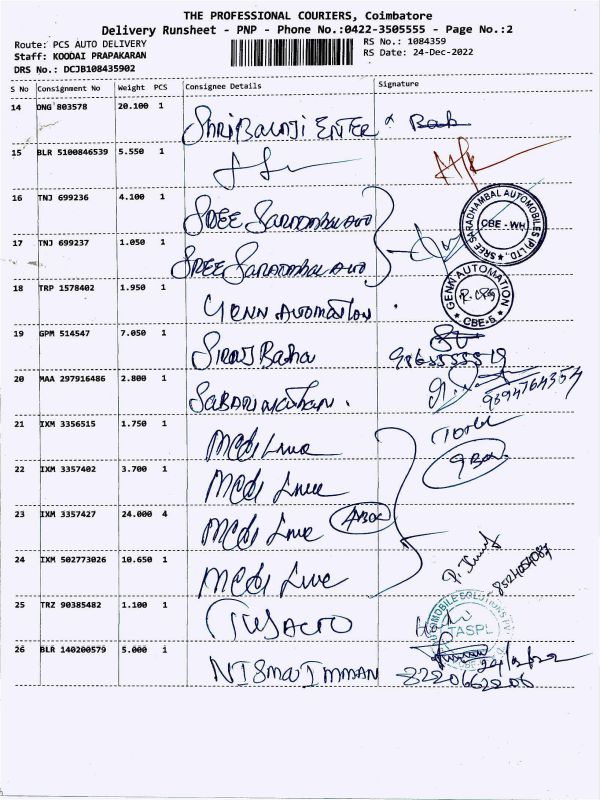 THE PROFESSIONAL COURIERS, Coimbatore
Delivery Runsheet - PNP - Phone No.:0422-3505555 - Page No.:2
Route: PCS AUTO DELIVERY
RS No.: 1084359
Staff: KOODAI PRAPAKARAN
RS Date: 24-Dec-2022
DRS No.: DCJB108435902
S No Consignment No Weight PCS Consignee Details Signature
14 DNG 803578 20.100 1 Shri Balaji ENTER
15 BLR 5100846539 5.550 1
16 TNJ 699236 4.100 1 SREE Saradambal Auto
SREE SARADHAMBAL AUTOMOBILES (P) LTD.
CBE - WH
17 TNJ 699237 1.050 1 SREE Saradambal Auto
18 TRP 1578402 1.950 1 GENN AUTOMATION
GENN AUTOMATION
CBE-6
19 GPM 514547 7.050 1 Siraj Basha
20 MAA 297916486 2.800 1 SABARINATHAN.
9394764354
21 IXM 3356515 1.750 1 Medi Line
Total
9 Box
22 IXM 3357402 3.700 1 Medi Line
23 IXM 3357427 24.000 4 Medi Line 4 Box
24 IXM 502773026 10.650 1 Medi Line
8524054087
25 TRZ 90385482 1.100 1 TVS AUTO
AUTOMOBILE SOLUTIONS
TASPL
26 BLR 140200579 5.000 1 NISMA IMMAN
24/12/22
8220662206